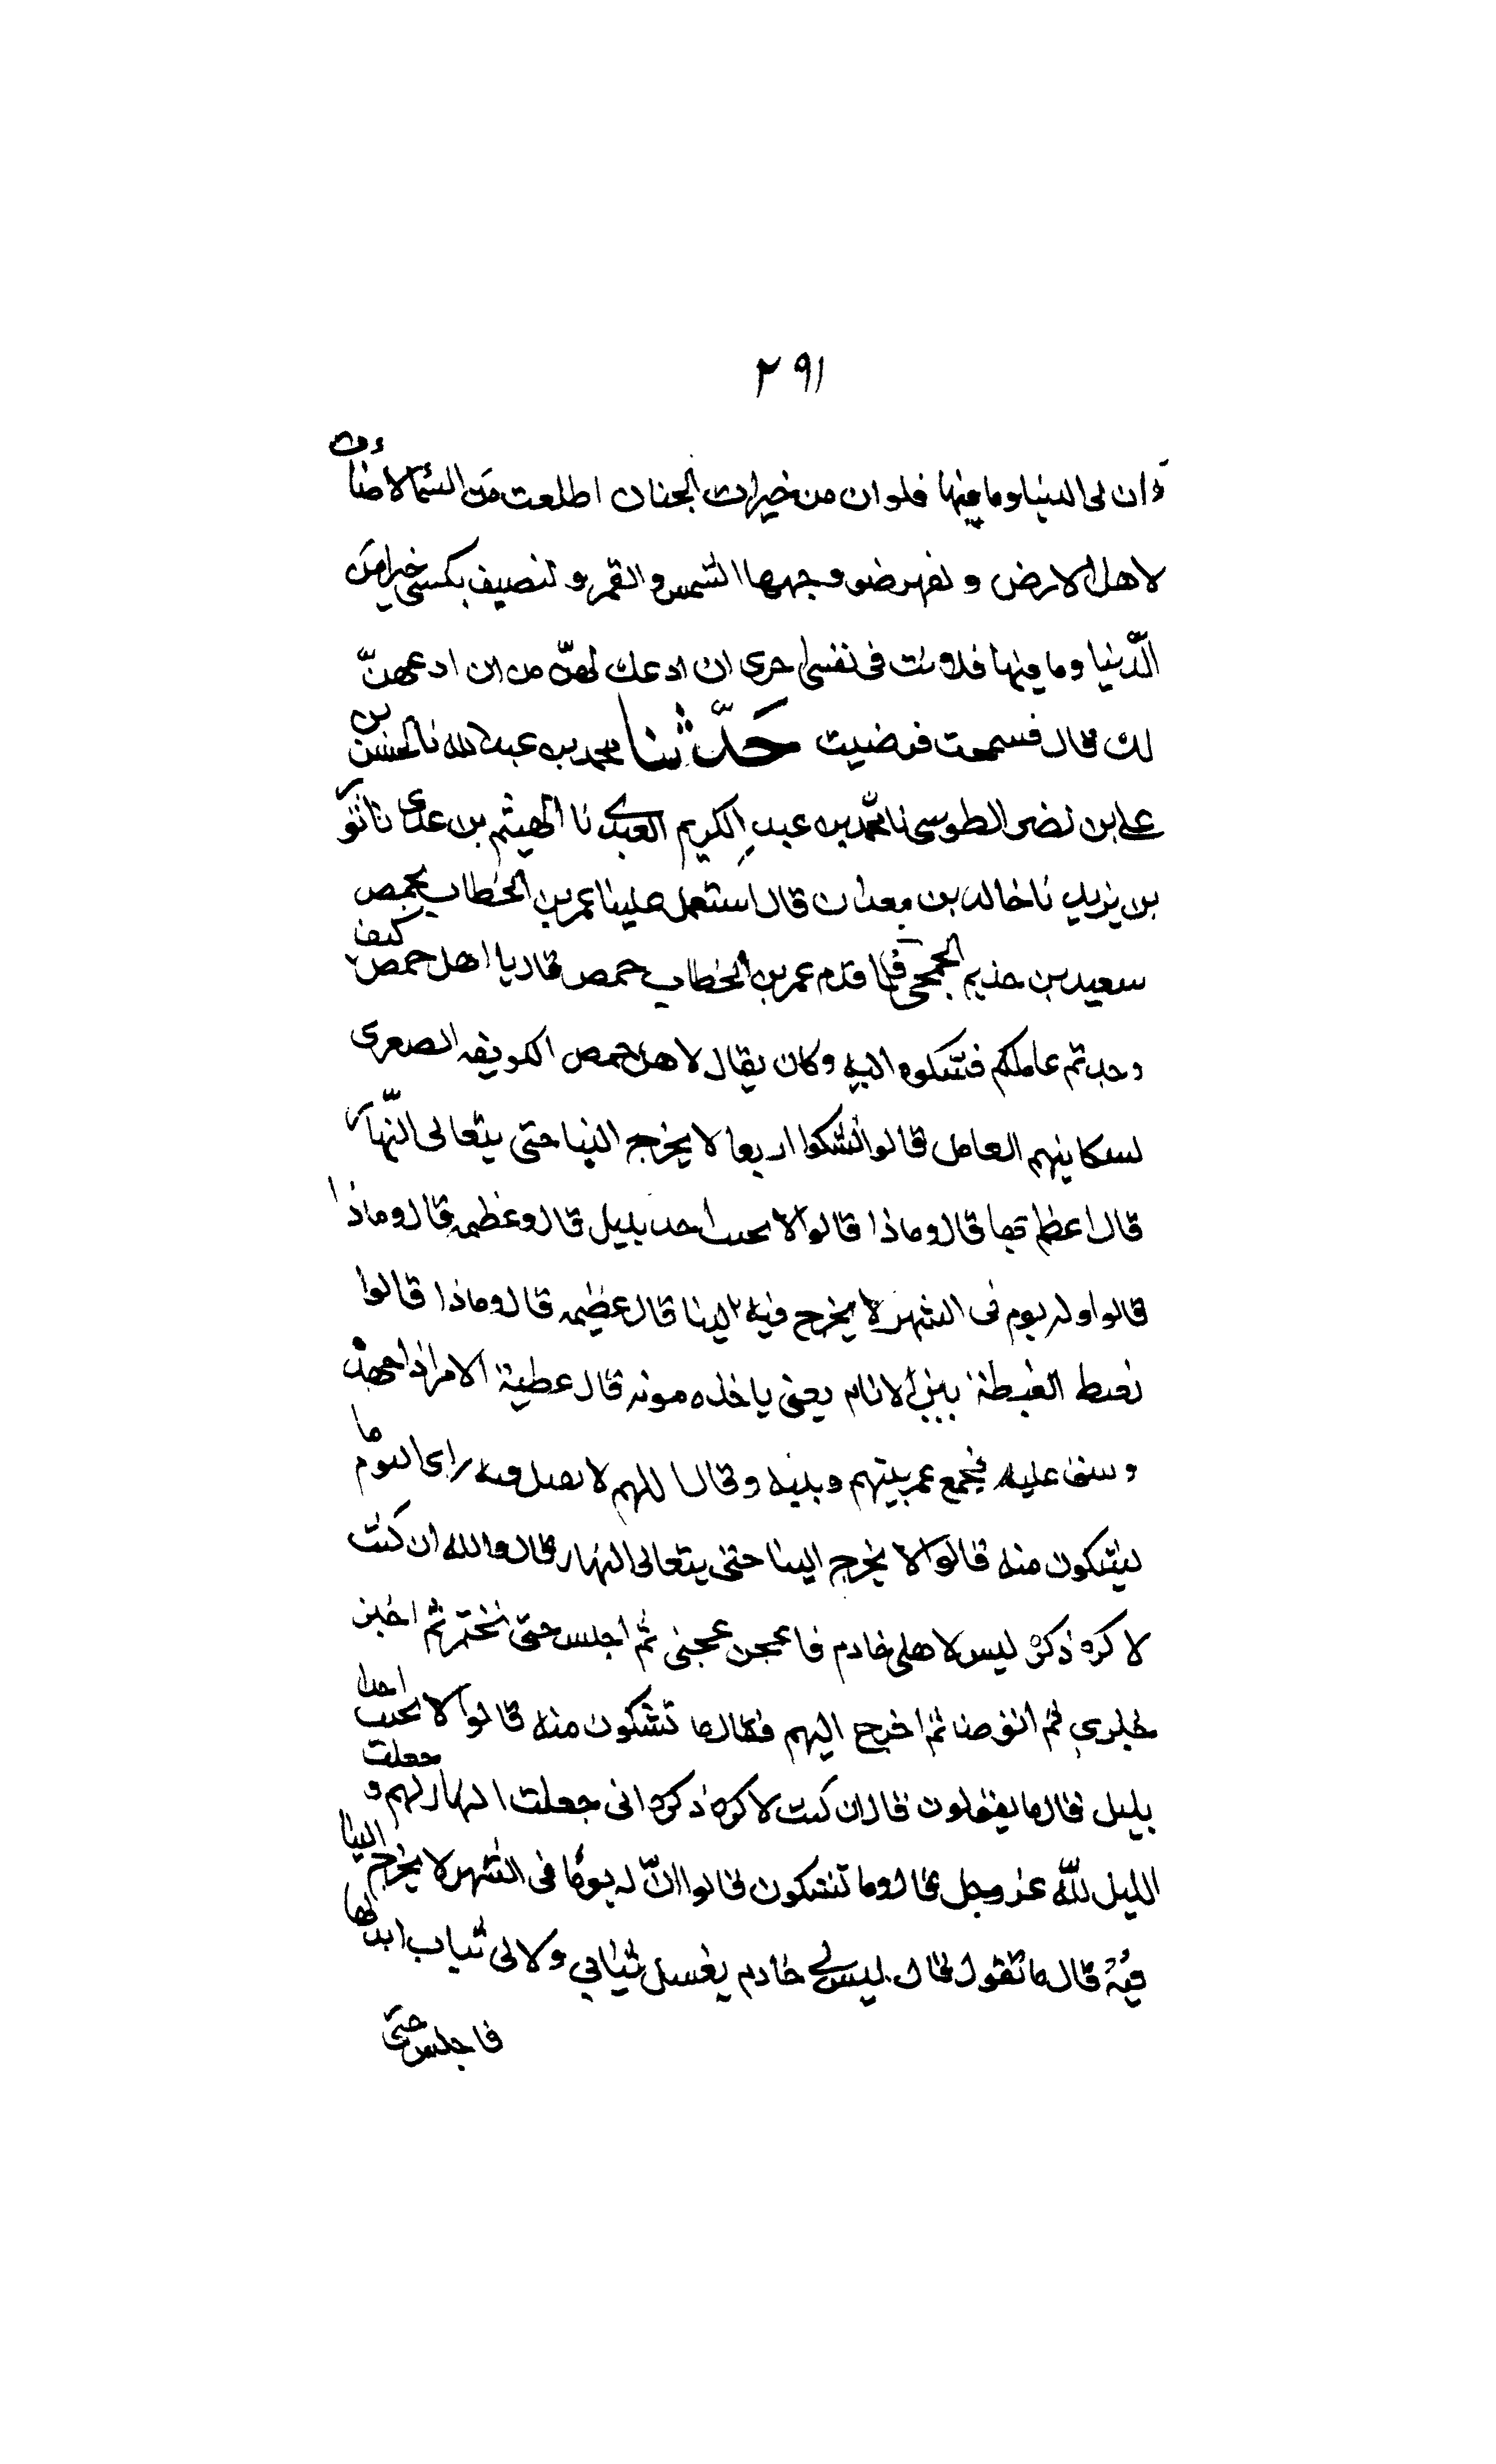 ٢٩١
وان لى الدنيا وما فيها فلو ان من خيرات الجنان اطلعت من السما لاضاءت
لاهل الارض و نصيف بكسى خيرا من
الدنيا وما فيها فلانت فى نفسى احرى ان ادعك لهنّ من ان ادعهنّ
لك قال فسمحت فرضيت حَدّثنا محمد بن عبد الله نا الحسن بن
على بن نصر الطوسى نا محمد بن عبد الكريم العبدى نا الهيثم بن عدى نا ثور
بن يزيد نا خالد بن معدان قال استعمل علينا عمر بن الخطاب بحمص
سعيد بن حذيم الجمحى فلما قدم عمر بن الخطاب حمص قال يا اهل حمص كيف
وجدتم عاملكم فشكوه اليه وكان يقال لاهل حمص الكويفه الصغرى
لسكاينهم العامل قالوا نشكوا اربعا لا يخرج الينا حتى يتعالى النّهار
قال اعظم بها قال وماذا قالوا لا يجيب احد بليل قال وعظيمه قال وماذا
قالوا وله يوم فى الشهر لا يخرج فيه الينا قال عظيمه قال وماذا قالوا
يغبط الغبطة بين الانام يعنى ياخذه موته قال
عليه فجمع عمر بينهم وبينه وقال اللهم لا راى اليوم ما
يشكون منه قالوا لا يخرج الينا حتى يتعالى النهار قال والله ان كنت
لا كره ذكره ليس لاهلى خادم فاعجن عجنى ثم اجلس حتى تختمر ثم اخبز
خبزى ثم اتوضا ثم اخرج اليهم فقال ما تشكون منه قالوا لا يجيب احدا
بليل قال ما يقولون قال ان كنت لاكره ذكره انى جعلت النهار لهم و جعلت
الليل للّه عز وجل قال وما تشكون قالوا انّ له يوما فى الشهر لا يخرج الينا
فيه قال ما تقول قال ليس لى خادم يغسل ثيابى ولا لى ثياب ابدلها
فاجلس حتى